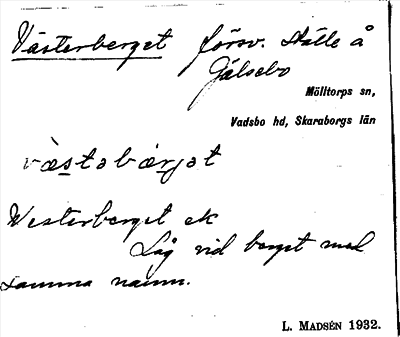 Västerberget försv. ställe å
Gälsebo
Mölltorps sn,
Vadsbo hd, Skaraborgs län
væstəbærjət
Westerberget ek
Låg vid berget med
samma namn.
L. MADSÉN 1932.